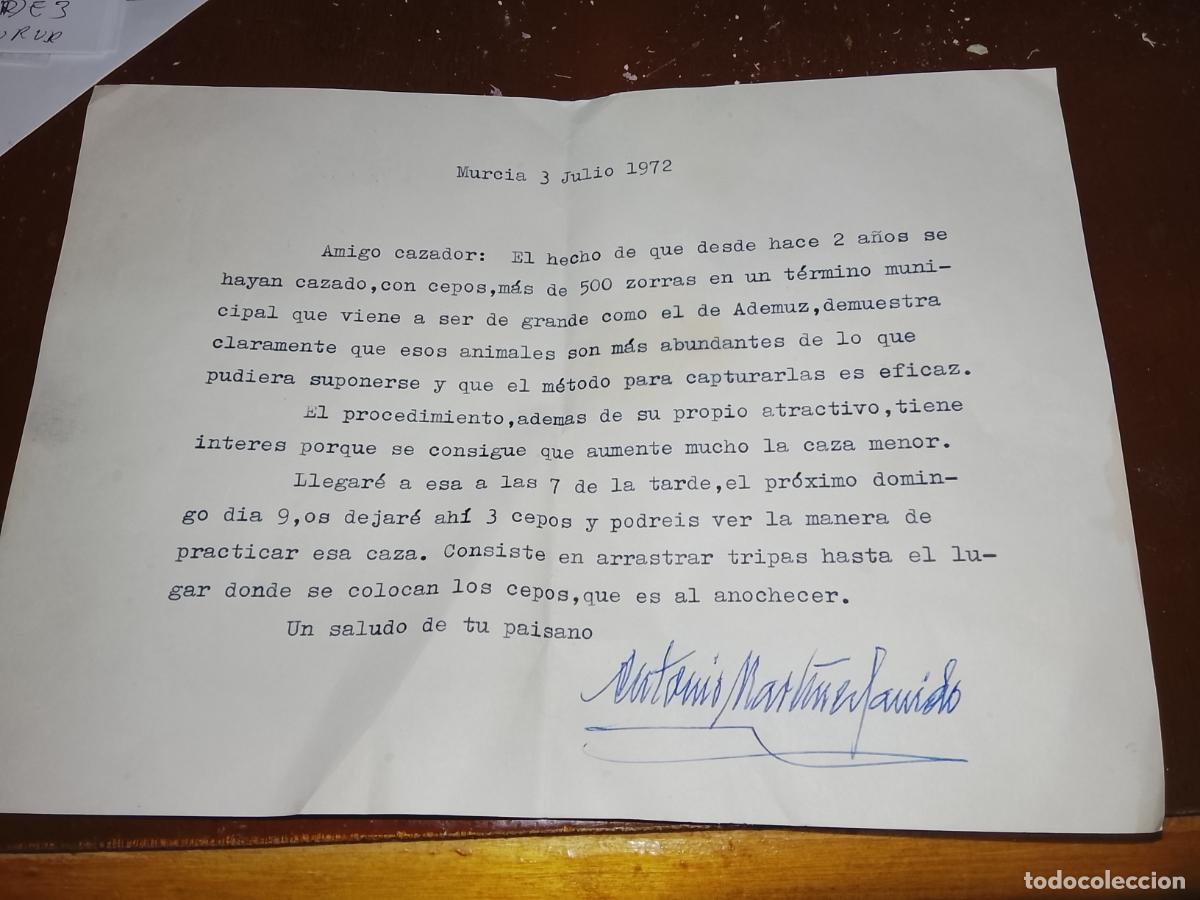 Murcia 3 Julio 1972
Amigo cazador: El hecho de que desde hace 2 años se
hayan cazado,con cepos,más de 500 zorras en un término muni-
cipal que viene a ser de grande como el de Ademuz,demuestra
claramente que esos animales son más abundantes de lo que
pudiera suponerse y que el método para capturarlas es eficaz.
El procedimiento,ademas de su propio atractivo,tiene
interes porque se consigue que aumente mucho la caza menor.
Llegaré a esa a las 7 de la tarde,el próximo domin-
go dia 9,os dejaré ahí 3 cepos y podreis ver la manera de
practicar esa caza. Consiste en arrastrar tripas hasta el lu-
gar donde se colocan los cepos,que es al anochecer.
Un saludo de tu paisano
Antonio Martínez
todocoleccion